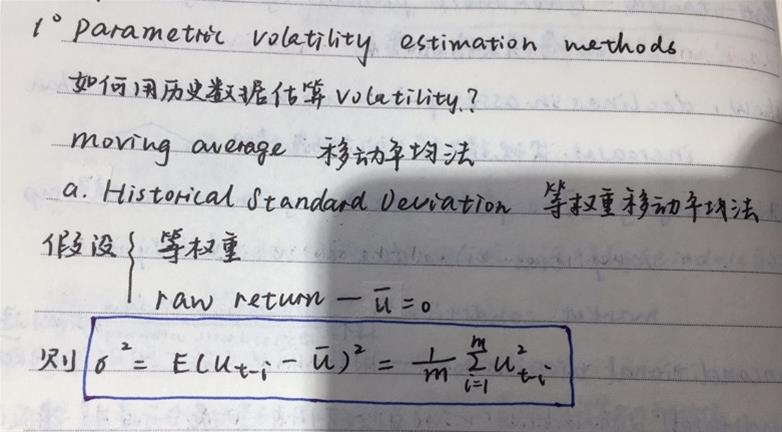 1° parametric volatility estimation methods
如何用历史数据估算 volatility?
moving average 移动平均法
a. Historical Standard Deviation 等权重移动平均法
假设 { 等权重
raw return — ū = 0
则 σ² = E(u_{t-i} - u)² = 1/m Σ_{i=1}^{m} u²_{t-i}